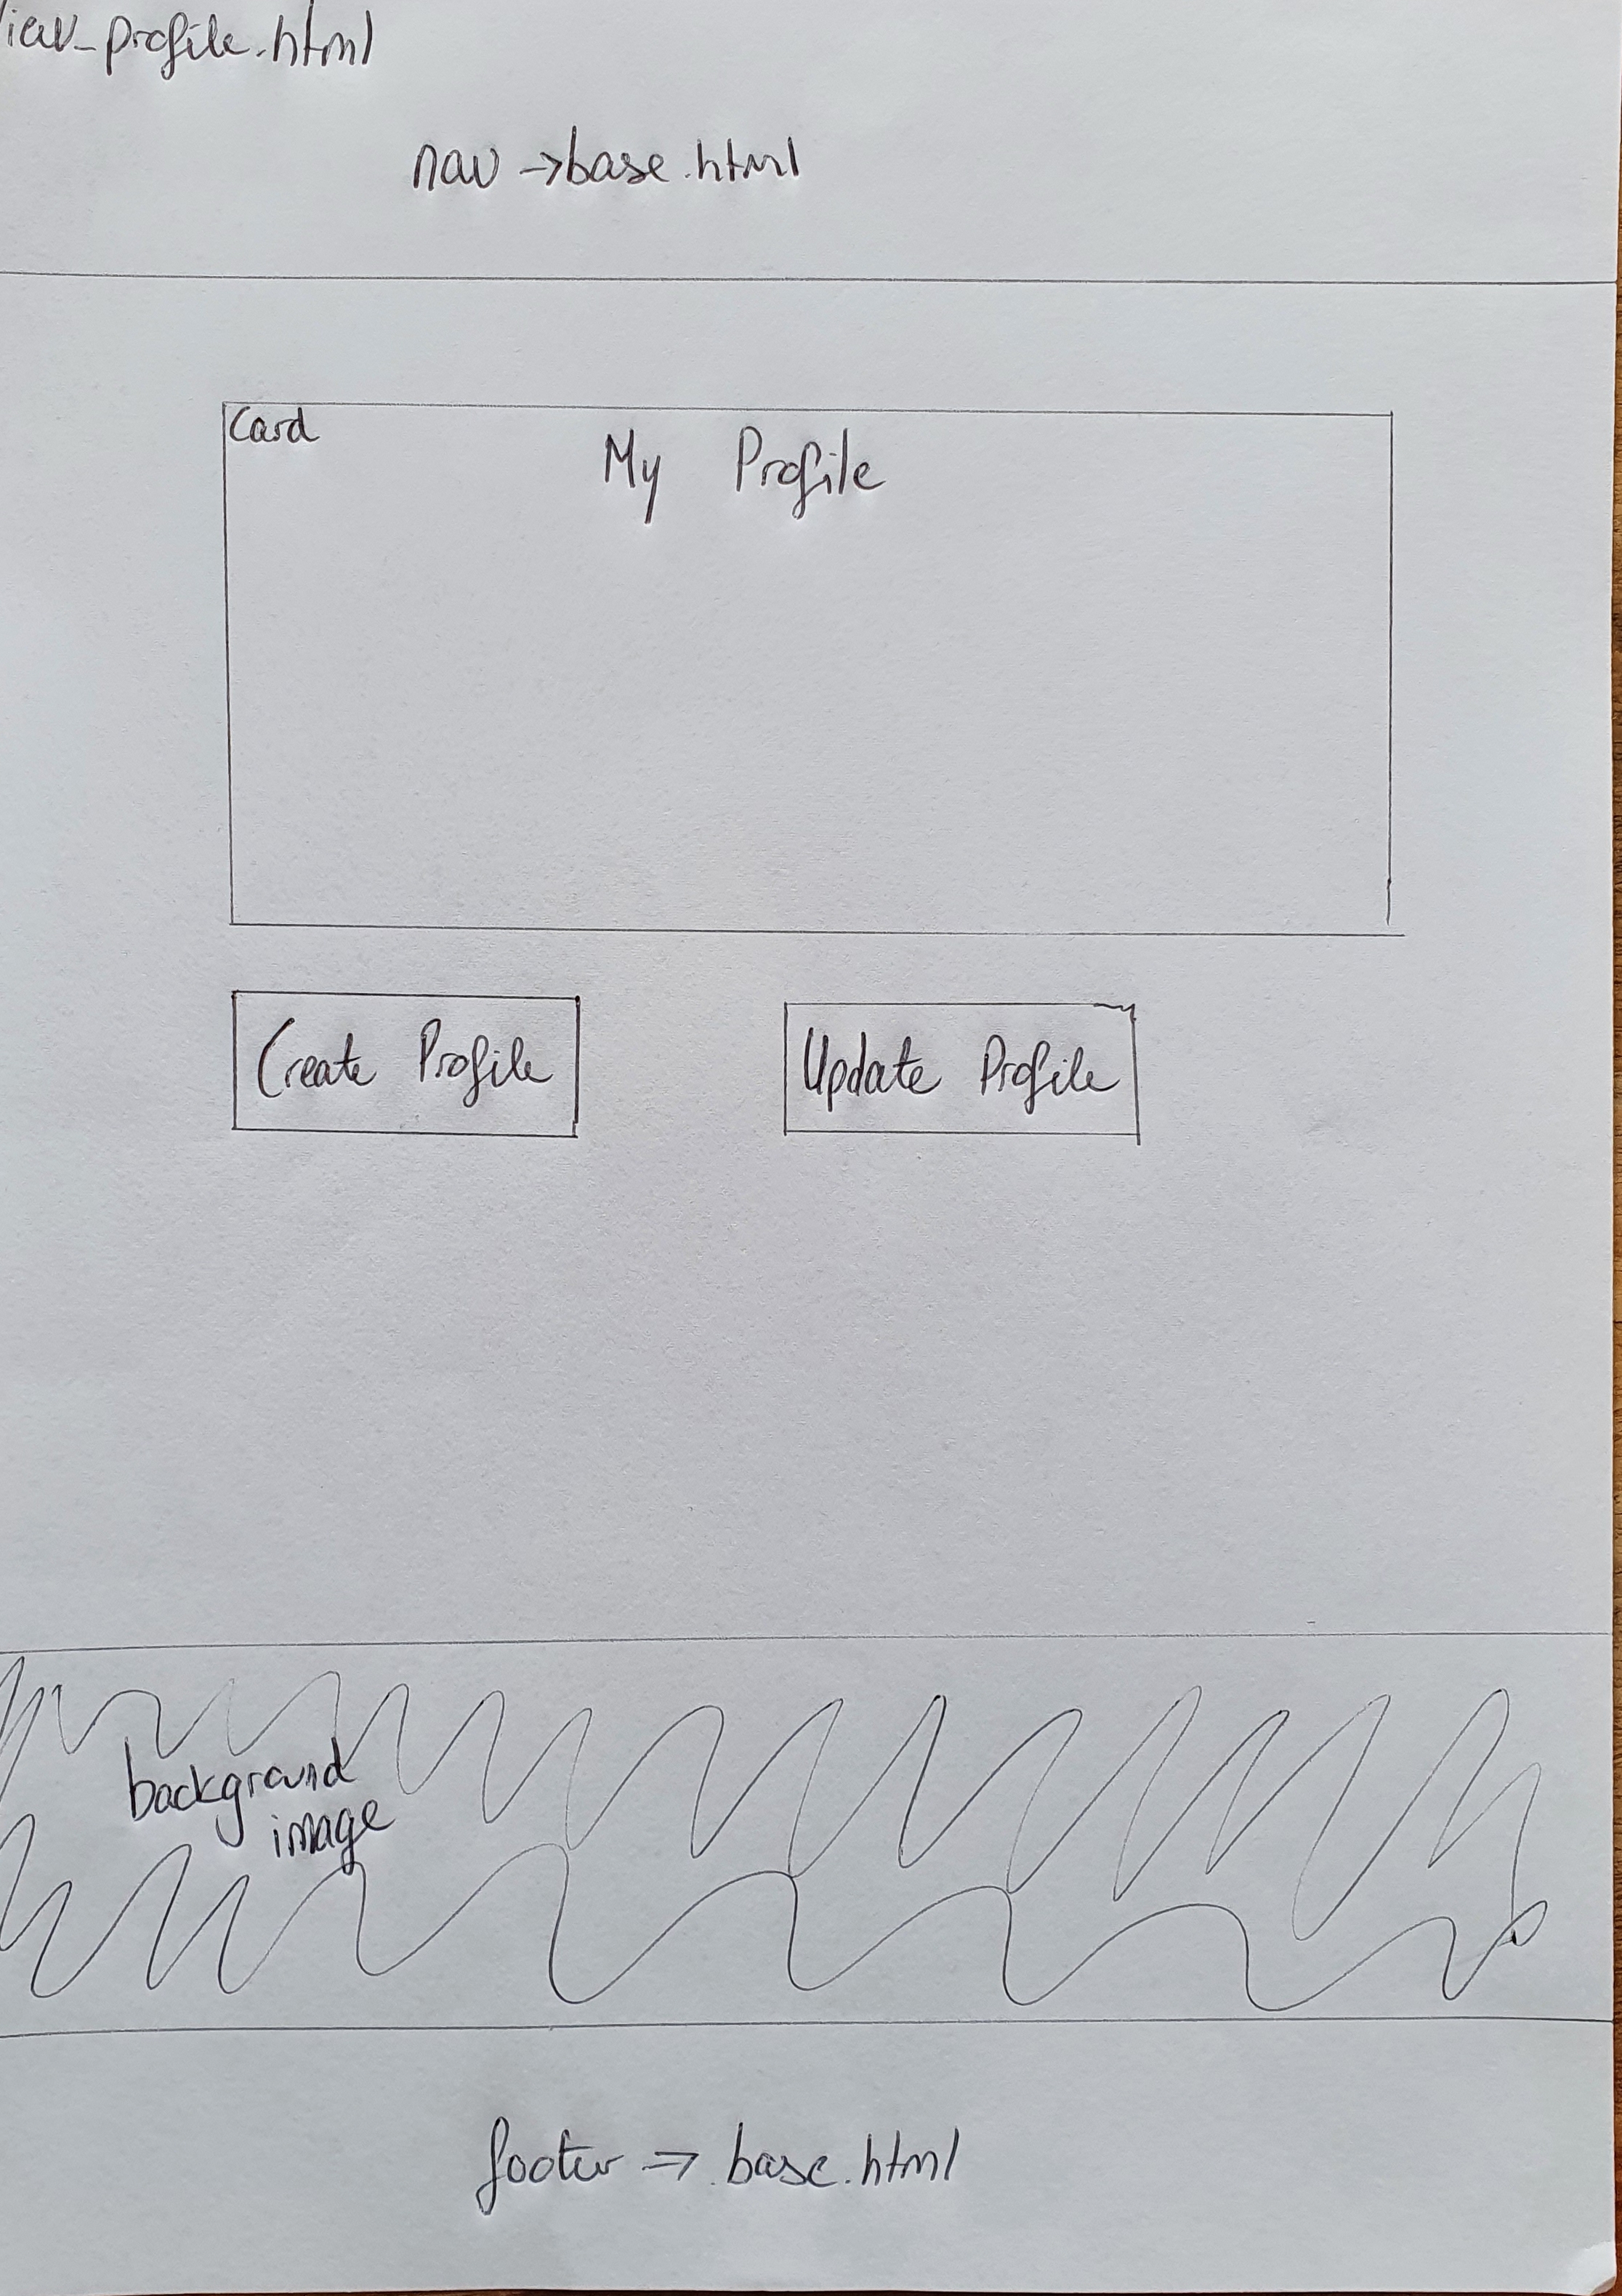 view_profile.html
nav -> base.html
Card
My Profile
Create Profile
Update Profile
background
image
footer => base.html